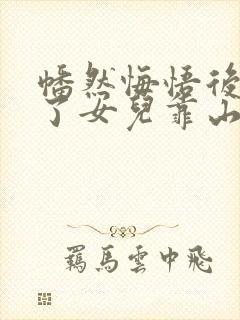 幡然悔悟後
了女兒靠山
羈馬雲中飛